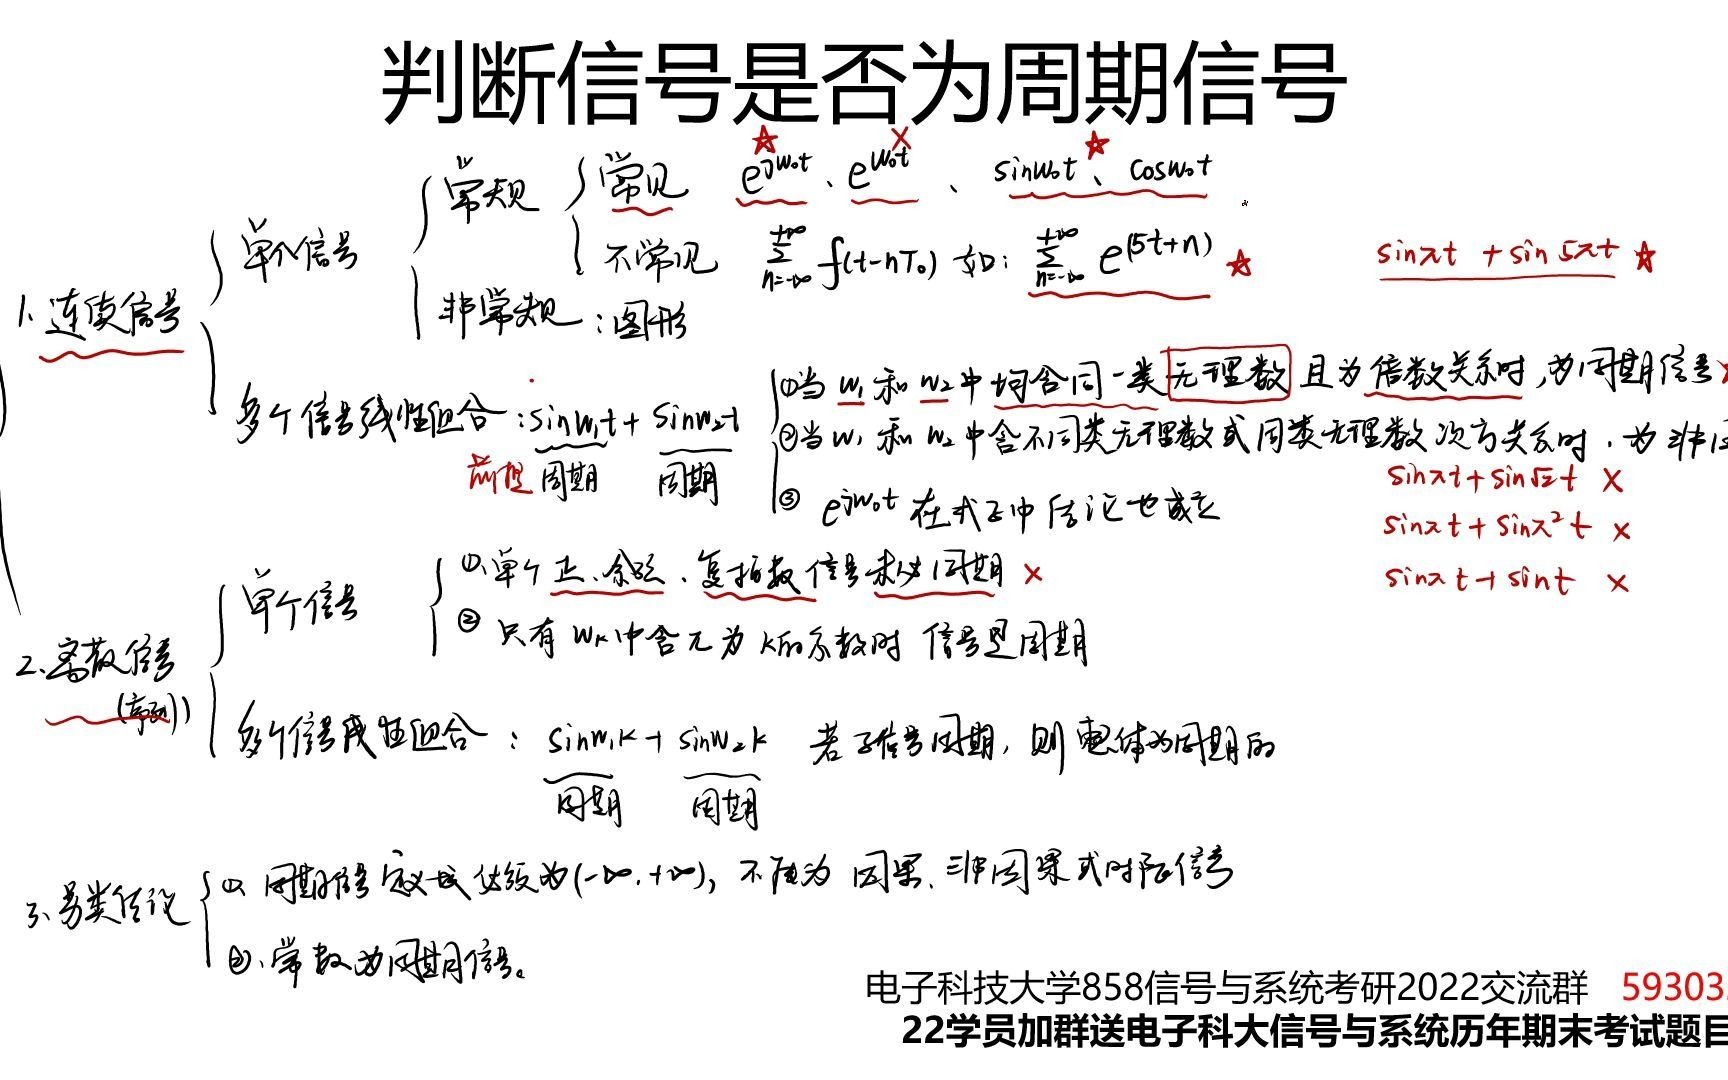 判断信号是否为周期信号
1. 连续信号
单个信号
常规
常见 e^{jw₀t}、e^{w₀t}、sinw₀t、cosw₀t
不常见 ∑_{n=-∞}^{+∞} f(t-nT₀) 如: ∑_{n=-∞}^{+∞} e^{(5t+n)}
sinπt + sin5πt ☆
非常规:图形
多个信号线性组合:sinw₁t + sinw₂t
前提 周期 周期
①当 w₁ 和 w₂ 中均含同一类无理数且为倍数关系时,为周期信号
②当 w₁ 和 w₂ 中含不同类无理数或同类无理数次方关系时,为非
③ e^{jw₀t} 在式子中结论也成立
sinπt + sin√2t ×
sinπt + sinπ²t ×
sinπt + sint ×
2. 离散信号
(序列)
单个信号
①、单个正、余弦、复指数信号未必周期 ×
② 只有 wk 中含π为k的系数时 信号是周期
多个信号线性组合: sinw₁k + sinw₂k 若子信号周期,则整体为周期的
周期 周期
3、另类结论
①、周期信号定义域必须为(-∞,+∞),不能为因果、非因果或时限信号
②、常数为周期信号。
电子科技大学858信号与系统考研2022交流群 59303
22学员加群送电子科大信号与系统历年期末考试题目